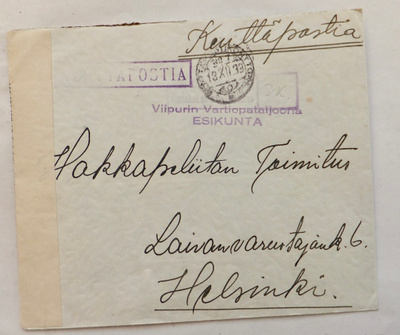 Kenttäpostia
KENTTÄPOSTIA
18 XII 39
Viipurin Vartiopataljoona
ESIKUNTA
Hakkapeliitan Toimitus
Laivanvarustajank. 6.
Helsinki.